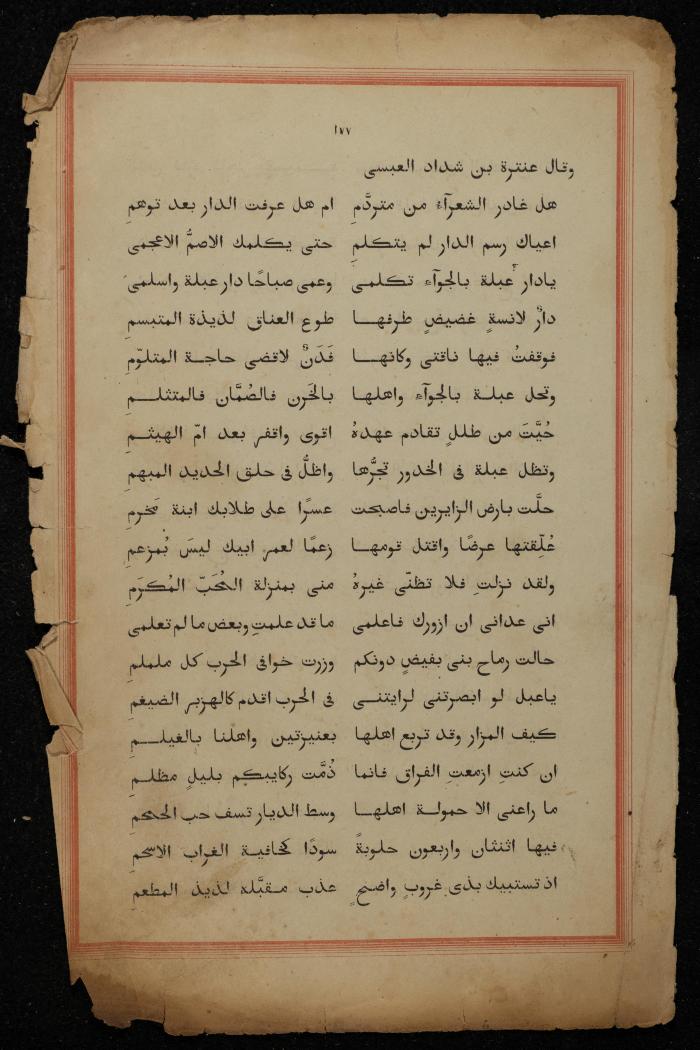 ١٧٧
وقال عنترة بن شداد العبسى
هل غادر الشعرآء من متردَّمِ ام هل عرفت الدار بعد توهمِ
اعياك رسم الدار لم يتكلمِ حتى يكلمك الاصمُّ الاعجمى
يادار عبلة بالجوآء تكلمى وعمى صباحًا دار عبلة واسلمى
دارٌ لانسةٍ غضيضٍ طرفهـا طوع العناق لذيذة المتبسمِ
فوقفتُ فيها ناقتى وكانهـا فَدَنٌ لاقضى حاجـة المتلوّمِ
وتحل عبلـة بالجوآء واهلها بالحَزن فالصُمَّان فالمتثلـمِ
حُيَّتَ من طللٍ تقادم عهدهُ اقوى واقفر بعد امّ الهيثـمِ
وتظل عبلة فى الخدور تجرُّها واظلُّ فى حلق الحديد المبهمِ
حلَّت بارض الزايرين فاصبحت عسرًا على طلابك ابنة مخرمِ
عُلِّقتها عرضًا واقتل قومهـا زعمًا لعمر ابيك ليسَ بُمزعمِ
ولقد نزلتِ فلا تظنّى غيرهُ منى بمنزلة المُحَبّ المُكرَمِ
انى عدانى ان ازورك فاعلمى ما قد علمتِ وبعض ما لم تعلمى
حالت رماح بنى بغيضٍ دونكم وزرت خوافى الحرب كل ململمِ
ياعبل لو ابصرتنى لرايتنـى فى الحرب اقدم كالهزبر الضيغمِ
كيف المزار وقد تربع اهلها بعنيزتين واهلنا بالغيلـمِ
ان كنتِ ازمعتِ الفراق فانما ذُمَّت ركايبكم بليلٍ مظلـمِ
ما راعنى الا حمولـة اهلهـا وسط الديار تسف حب الخمخم
فيها اثنثان واربعون حلوبةً سودًا كخافية الغراب الاسحمِ
اذ تستبيك بذى غروبٍ واضحٍ عذب مـقبَّله لذيذ المطعمِ